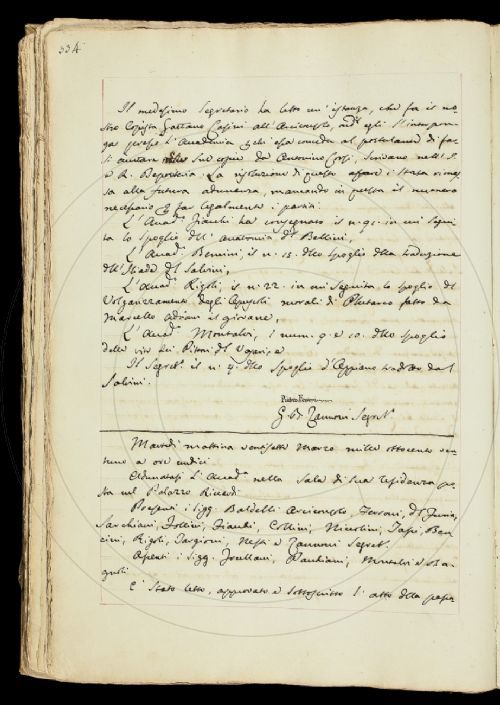 334
Il medesimo Segretario ha letto un' istanza, che fa il no-
stro Copista Gaetano Casini all' Arciconsolo, ond' egli
presso l' Accademia chi essa conceda al postulante di far-
si aiutare nelle sue copie da Antonino Corsi, Scrivano nell' I.
e R. Depositeria. La risoluzione di questo affare è stata rimes-
sa alla futura adunanza, mancando in questa il numero
necessario per far legalmente i partiti.
L' Accad. Fiacchi ha consegnato il n. 91. in cui seguita
lo spoglio dell' Anatomia del Bellini,
L' Accad. Bencini, il n. 15. dello spoglio della traduzione
dell' Iliade del Salvini,
L' Accad. Rigoli, il n. 22. in cui seguita lo spoglio del
Volgarizzamento degli Opuscoli morali di Plutarco fatto da
Marcello Adriani il giovane,
L' Accad. Montalvi, i num. 9 e 10. dello spoglio
delle vite dei Pittori del
Il Segret. il n. 4. dello spoglio d' Oppiano tradotto dal
Salvini.
G. B. Zannoni Segret.
Martedì mattina ventisette Marzo mille ottocento ven-
tuno a ore undici
Adunatasi l' Accad. nella Sala di sua residenza po-
sta nel Palazzo Riccardi
Presenti i Sigg. Baldelli Arciconsolo, Ferroni, Del Furia,
Sarchiani, Follini, Fiacchi, Collini, Niccolini, Papi, Ben-
cini, Rigoli, Targioni, Nesti e Zannoni Segret.
Assenti i Sigg. Frullani, Pauliani, Montalvi e
È stato letto, approvato e sottoscritto l' atto della passa-